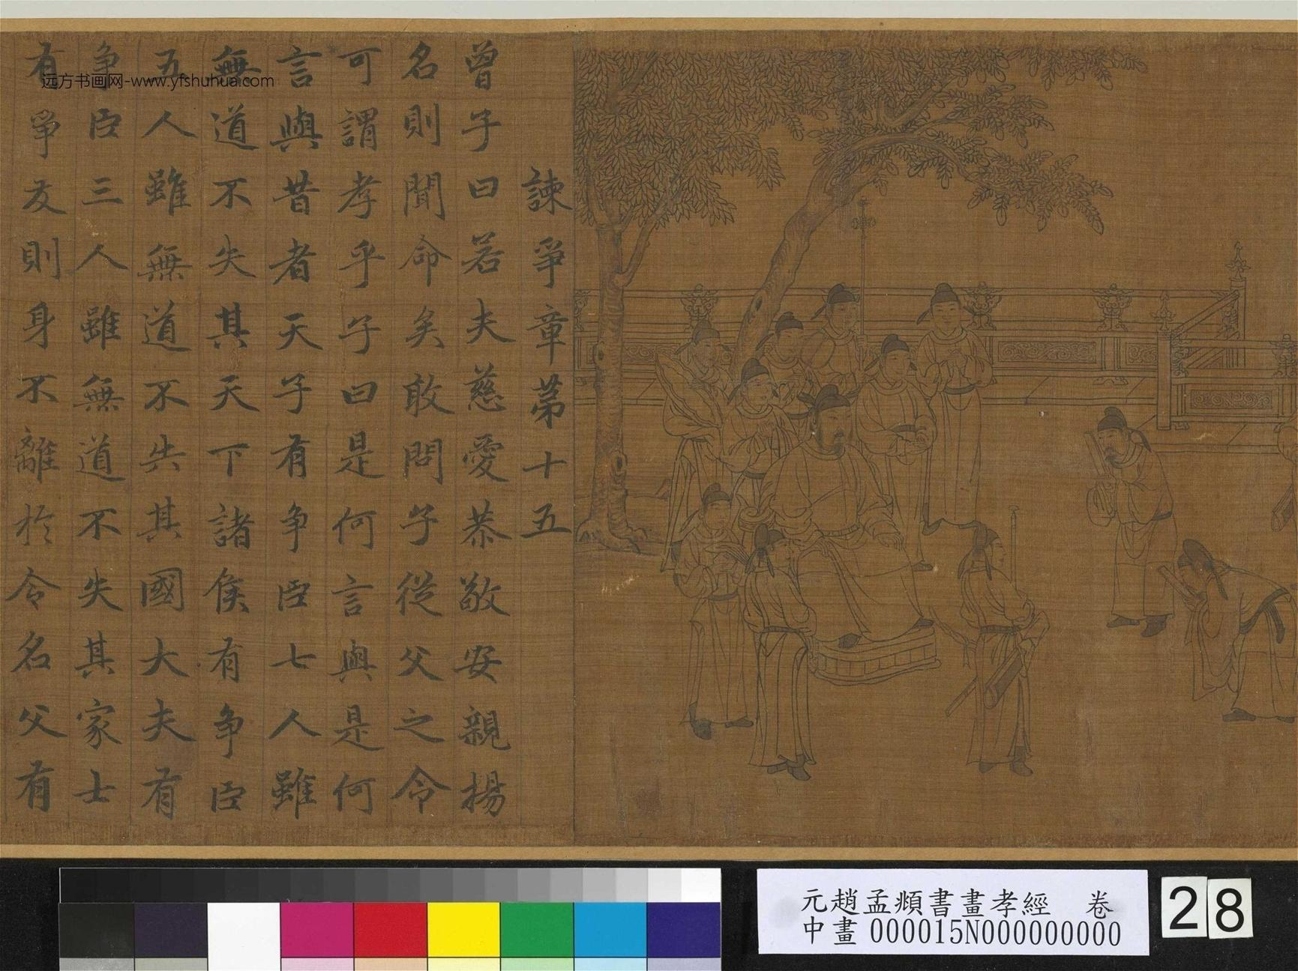 諫爭章第十五
曾子曰若夫慈愛恭敬安親揚
名則聞命矣敢問子從父之令
可謂孝乎子曰是何言與是何
言與昔者天子有争臣七人雖
無道不失其天下諸侯有争臣
五人雖無道不失其國大夫有
争臣三人雖無道不失其家士
有爭友則身不離於令名父有
远方书画网-www.yfshuhua.com
元趙孟頫書畫孝經 卷
中畫 000015N000000000
28